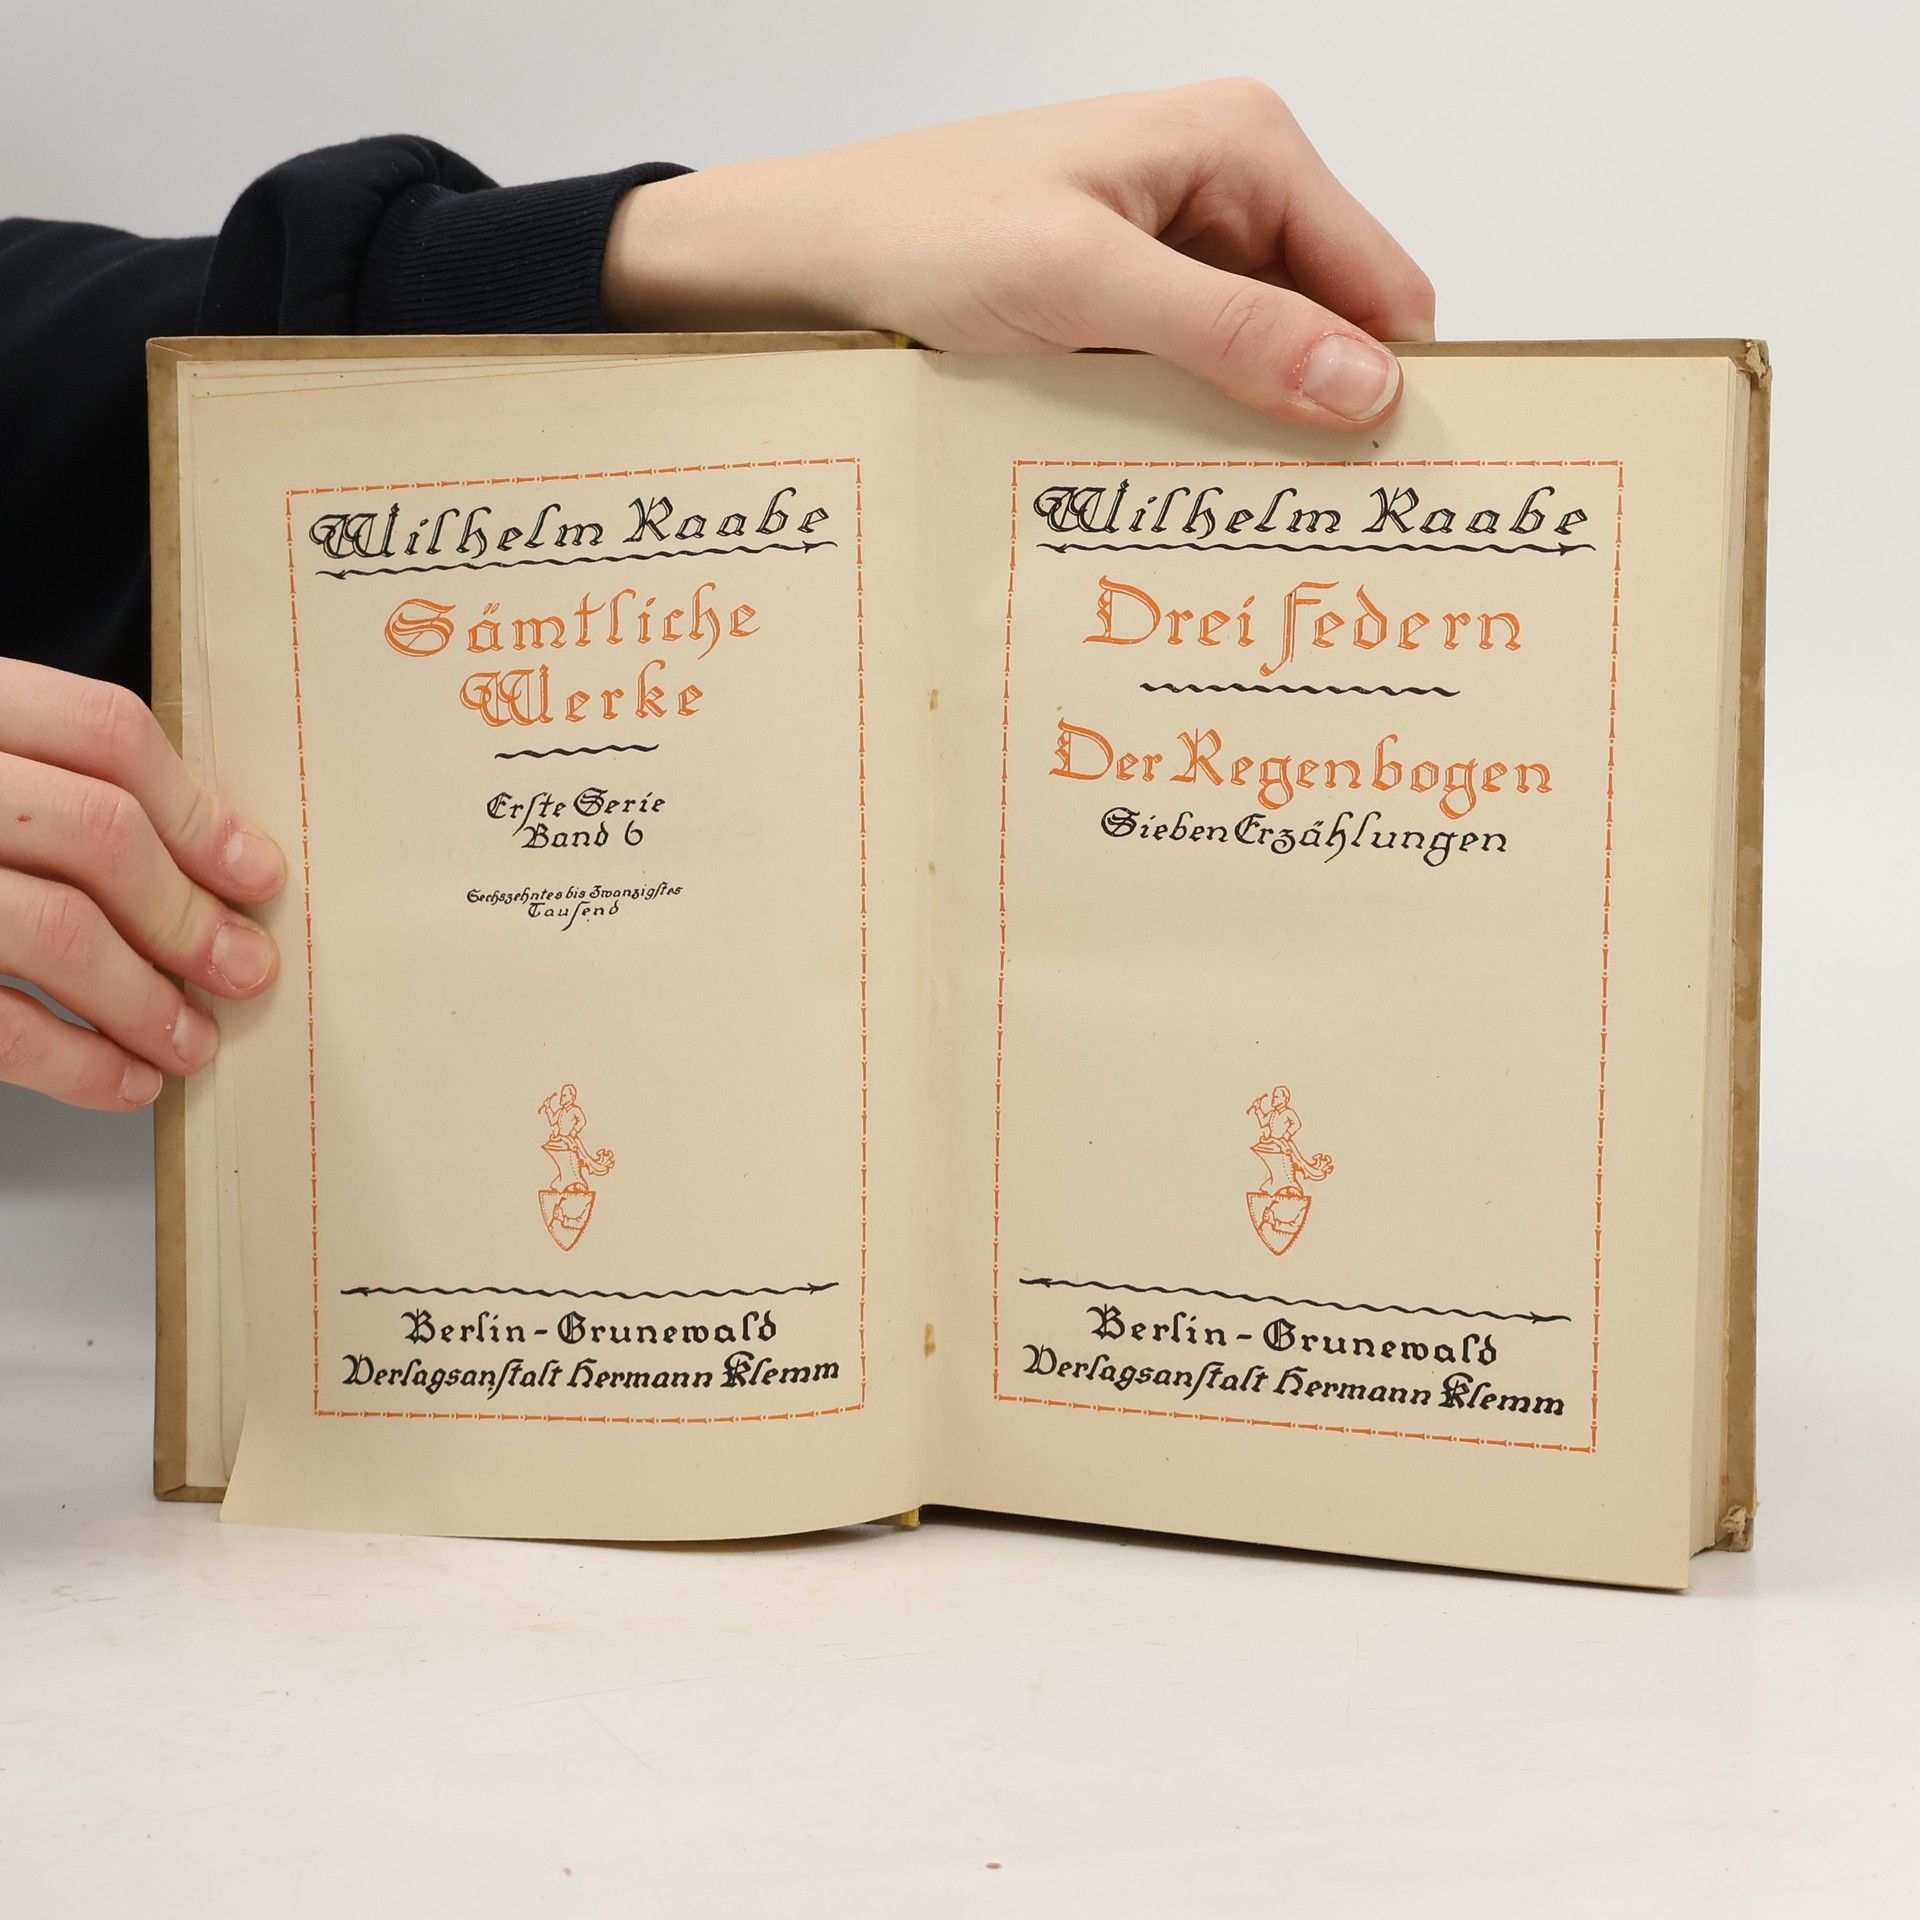 Wilhelm Raabe
Sämtliche
Werke
Erſte Serie
Band 6
Sechszehntes bis Zwanzigſtes
Tauſend
Berlin-Grunewald
Verlagsanſtalt Hermann Klemm
Wilhelm Raabe
Drei Federn
Der Regenbogen
Sieben Erzählungen
Berlin-Grunewald
Verlagsanſtalt Hermann Klemm